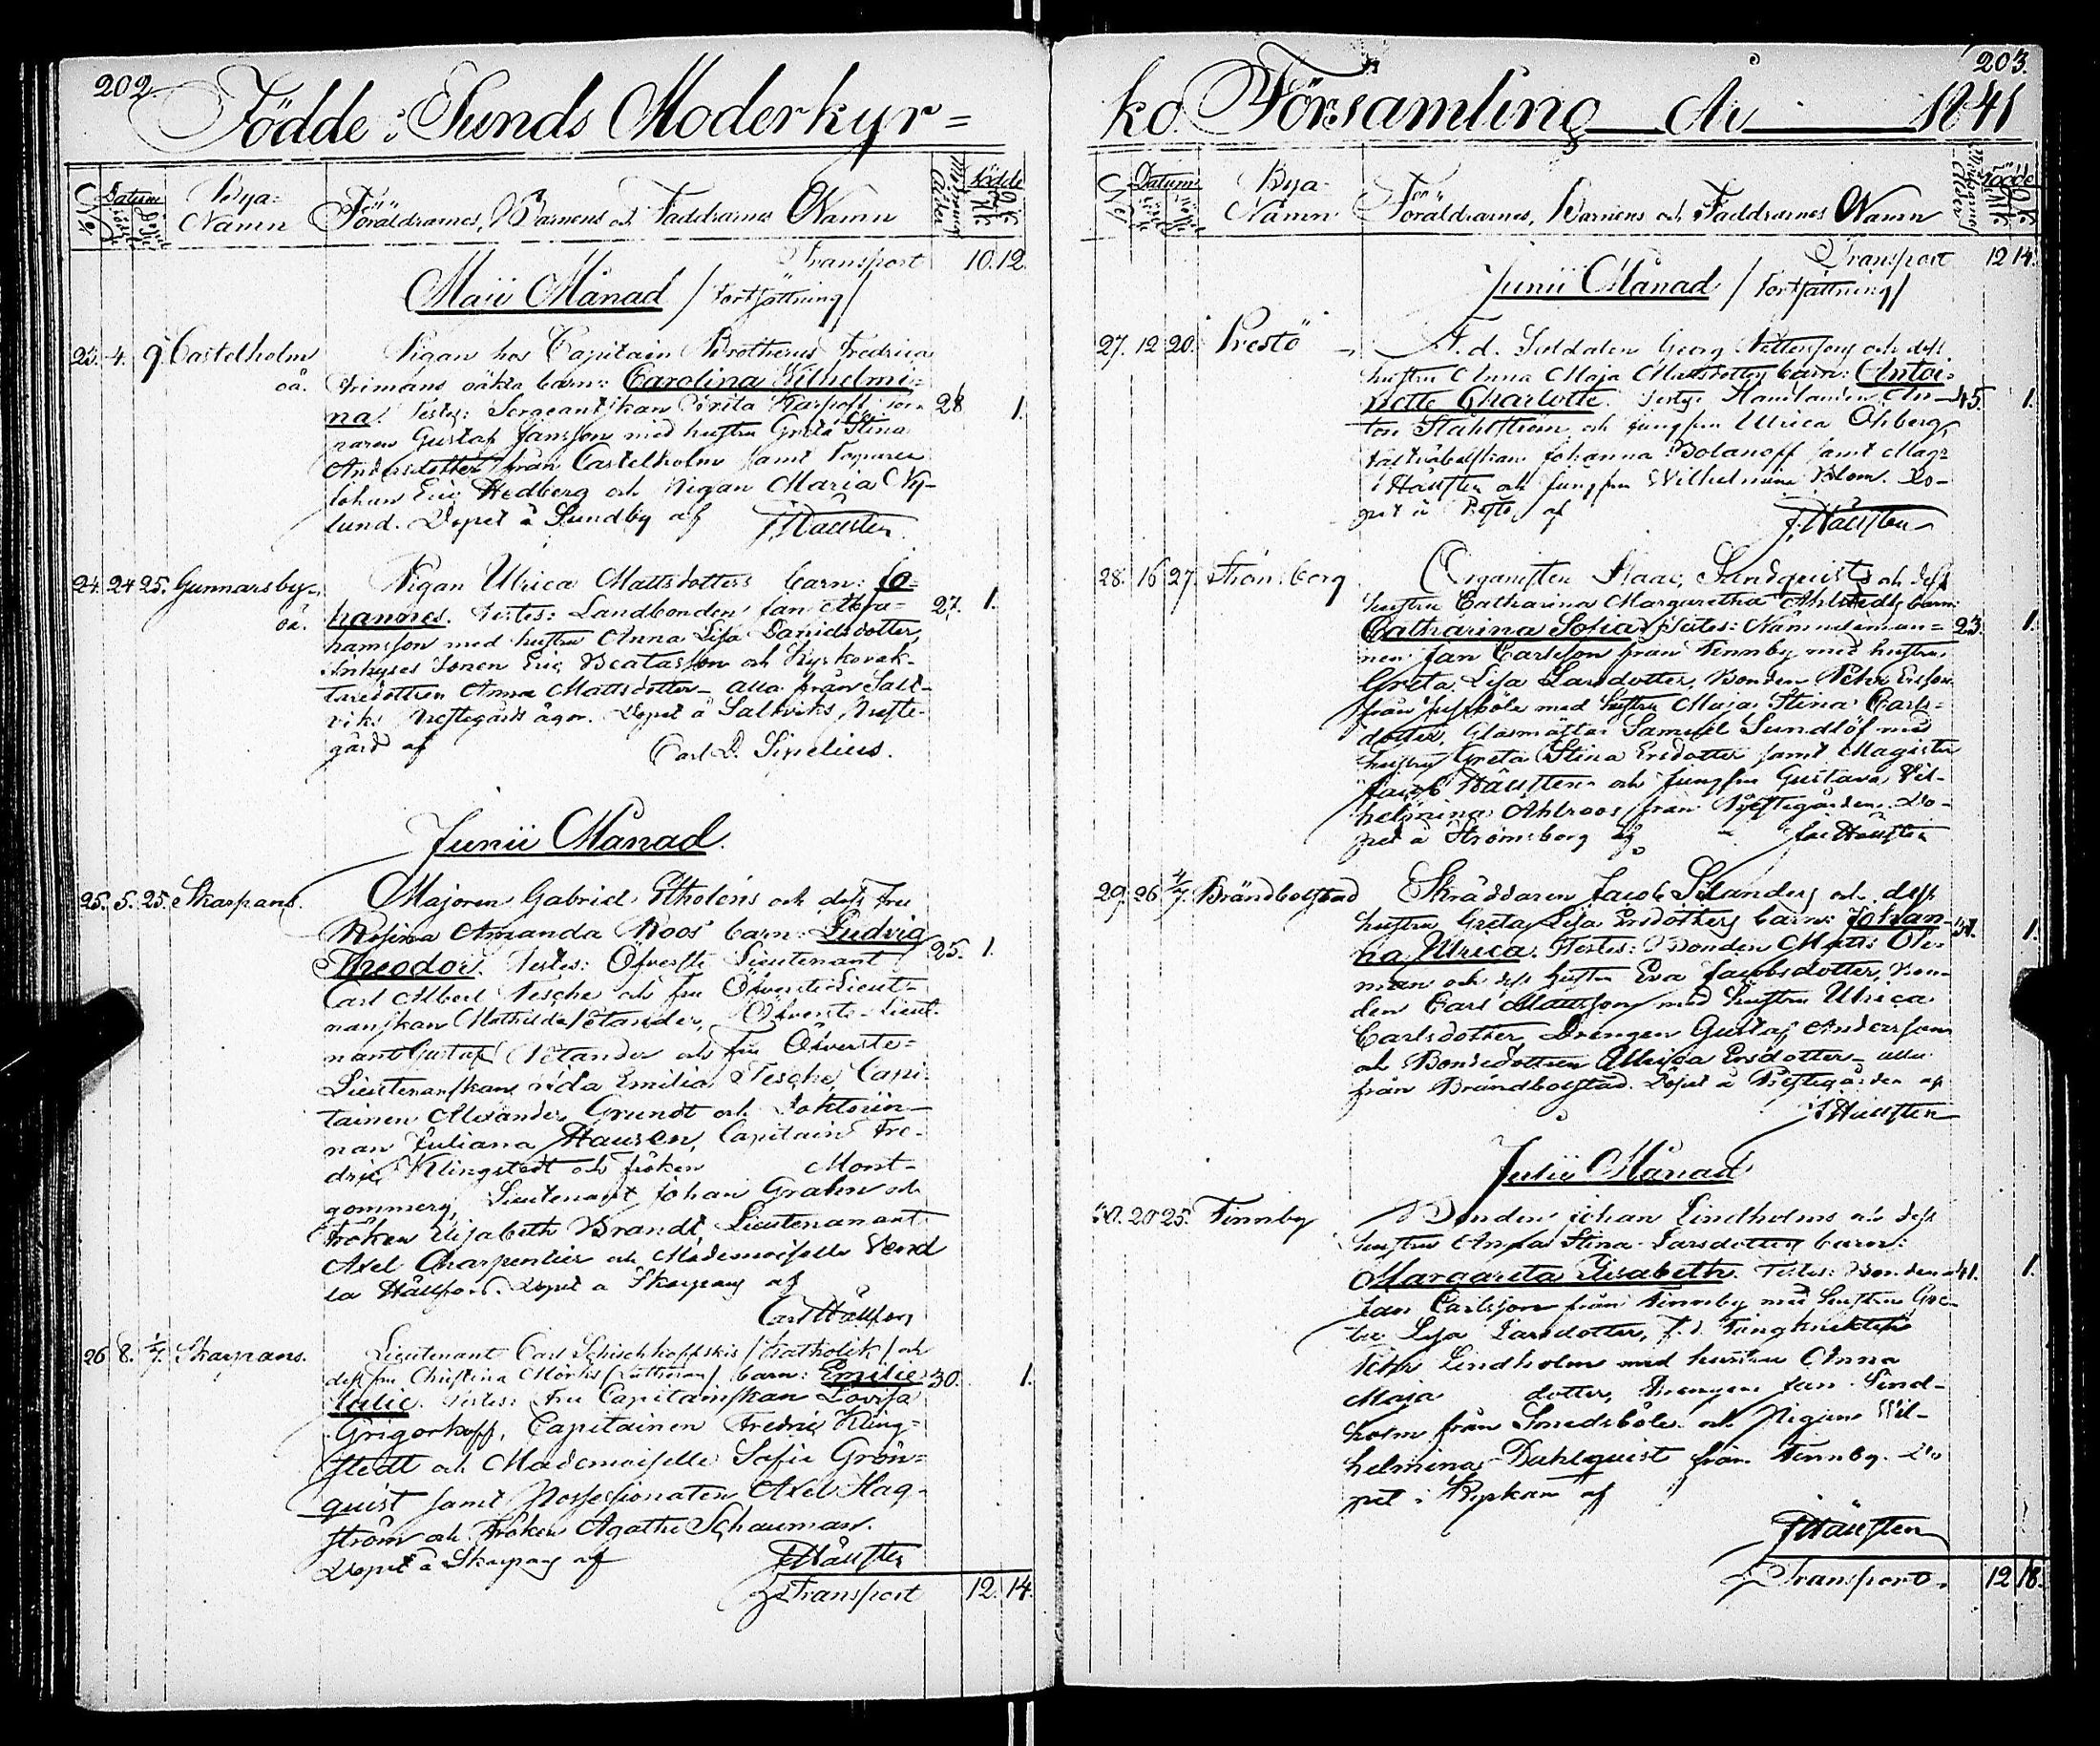 202.
Födde i Sunds Moderkyr=
No
Datum
Bya-
Namn
Föräldrarnes, Barnens och Faddrarnes Namn
Födde
Transport 10. 12.
Maii Månad /Fortsättning/
23. 4. 9. Castelholm Pigan hos Capitain Brotherus Fredrica
oä. Frimans oäkta barn: Carolina Wilhelmi=
na. Testes: Sergeantskan Brita 28. 1.
naren Gustaf Jansson med hustru Greta Stina
Andersdotter från Castelholm samt
Johan Eric Hedberg och Pigan Maria Ny-
lund. Döpet å Sundby af J. Håuffen
24. 24 25. Gunnarsby- Pigan Ulrica Mattsdotters barn: Jo=
oä. hannes. Testes: Landbonden Jan Abra= 27. 1.
hamsson med hustru Anna Lisa Danielsdotter,
Inhyses Sonen Eric Beatasson och Kyrkovak-
taredottren Anna Mattsdotter – alla från Salt-
viks Prestegårds ägor. Döpet å Saltviks Preste-
gård af Carl D. Sirelius.
Junii Månad.
25. 5. 25. Skarpans. Majoren Gabriel Etholéns och dess Fru
Rosina Amanda Roos barn: Ludvig
Theodor. Testes: Öfverste Lieutenant 25. 1.
Carl Albert Tesche och Fru Öfverste Lieut-
nanskan Mathilda Etander, Öfverste-Lieut-
nant Gustaf Etander och fru Öfverste=
Lieutenanskan Ida Emilia Tesche, Capi-
tainen Alexander Grundt och Doktorin-
nan Juliana Hausen, Capitain Fre-
dric Klingstedt och fröken Mont-
gommery, Lieutenant Johan Grahn och
Fröken Elisabeth Brandt, Lieutenanant
Axel Charpentier och Mademoiselle Vend
la Håuffen. Döpet å Skarpans af
Carl Håuffen
26 8. 1/7. Skarpans. Lieutenant Carl Schischkoffskis /Katholik/ och
dess fru Christina Mörks /Lutheran/ barn: Emilie 30. 1.
Julie. Testes: Fru Capitainskan Lovisa
Grigorkoff, Capitainen Fredric Kling=
stedt och Mademoiselle Sofie Grön=
quist samt Possessionaten Axel Hag-
ström och Fröken Agathe Schauman.
Döpet å Skarpans af J. Håuffen
Transport 12. 14.
203.
ko Församling År 1841
No
Datum
Bya-
Namn
Föräldrarnes, Barnens och Faddrarnes Namn
Födde
Transport 12 14.
Junii Månad /Fortsättning/
27. 12 20. Prestö F. d. Soldaten Georg Pettersons och dess
hustru Anna Maja Mattsdotters barn: Antoi=
nette Charlotte. Testes: Handlanden An- 45. 1.
ton Ståhlström och jungfru Ulrica Öhberg,
Johanna Bolanoff samt Mag:
J Håuffen och Jungfru Wilhelmina Blom. Dö-
pet å Prestö af J. Håuffen
28. 16 27. Strömsborg Organisten Isaac Sundquists och dess
hustru Catharina Margaretha Ahlstedts barn:
Catharina Sofia. Testes: Nämndeman= 23. 1.
nen Jan Carlsson från Finnby med hustru
Greta Lisa Larsdotter, Bonden Petter Ersson
från med hustru Maja Stina Carls=
dotter, Glasmästar Samuel Sundlöf med
hustru Greta Stina Ersdotter samt Magister
Jacob Håuffen och Jungfru Gustava Vil-
helmina Ahlroos från Prestegården. Dö-
pet å Strömsborg af Håuffen
29. 26 4/7. Brändbolstad Skräddaren Jacob Silanders och dess
hustru Greta Lisa Ersdotters barn: Johan-
na Ulrica. Testes: Bonden Matts Öle- 1.
man och dess hustru Eva Jacobsdotter, Bon-
den Carl Mattsson med hustru Ulrica
Carlsdotter, Drengen Gustaf Andersson
och Bondedottren Ulrica Ersdotter – alla
från Brändbolstad. Döpet å Prestegården af
J Håuffen
Julii Månad
30. 20 25. Finnby Bonden Johan Lindholms och dess
hustru Anna Stina Larsdotters barn:
Margareta Elisabeth. Testes: Bonden 41. 1.
Jan Carlsson från Finnby med hustru Gre-
ta Lisa Larsdotter, f. d. Fångknekten
Petter Lindholm med hustru Anna
Maja dotter, Drengen Jan Lind-
holm från Smedsböle och Pigan Wil-
helmina Dahlquist från Finnby. Dö
pet i Kyrkan af
J Håuffen
Transport. 12 18.